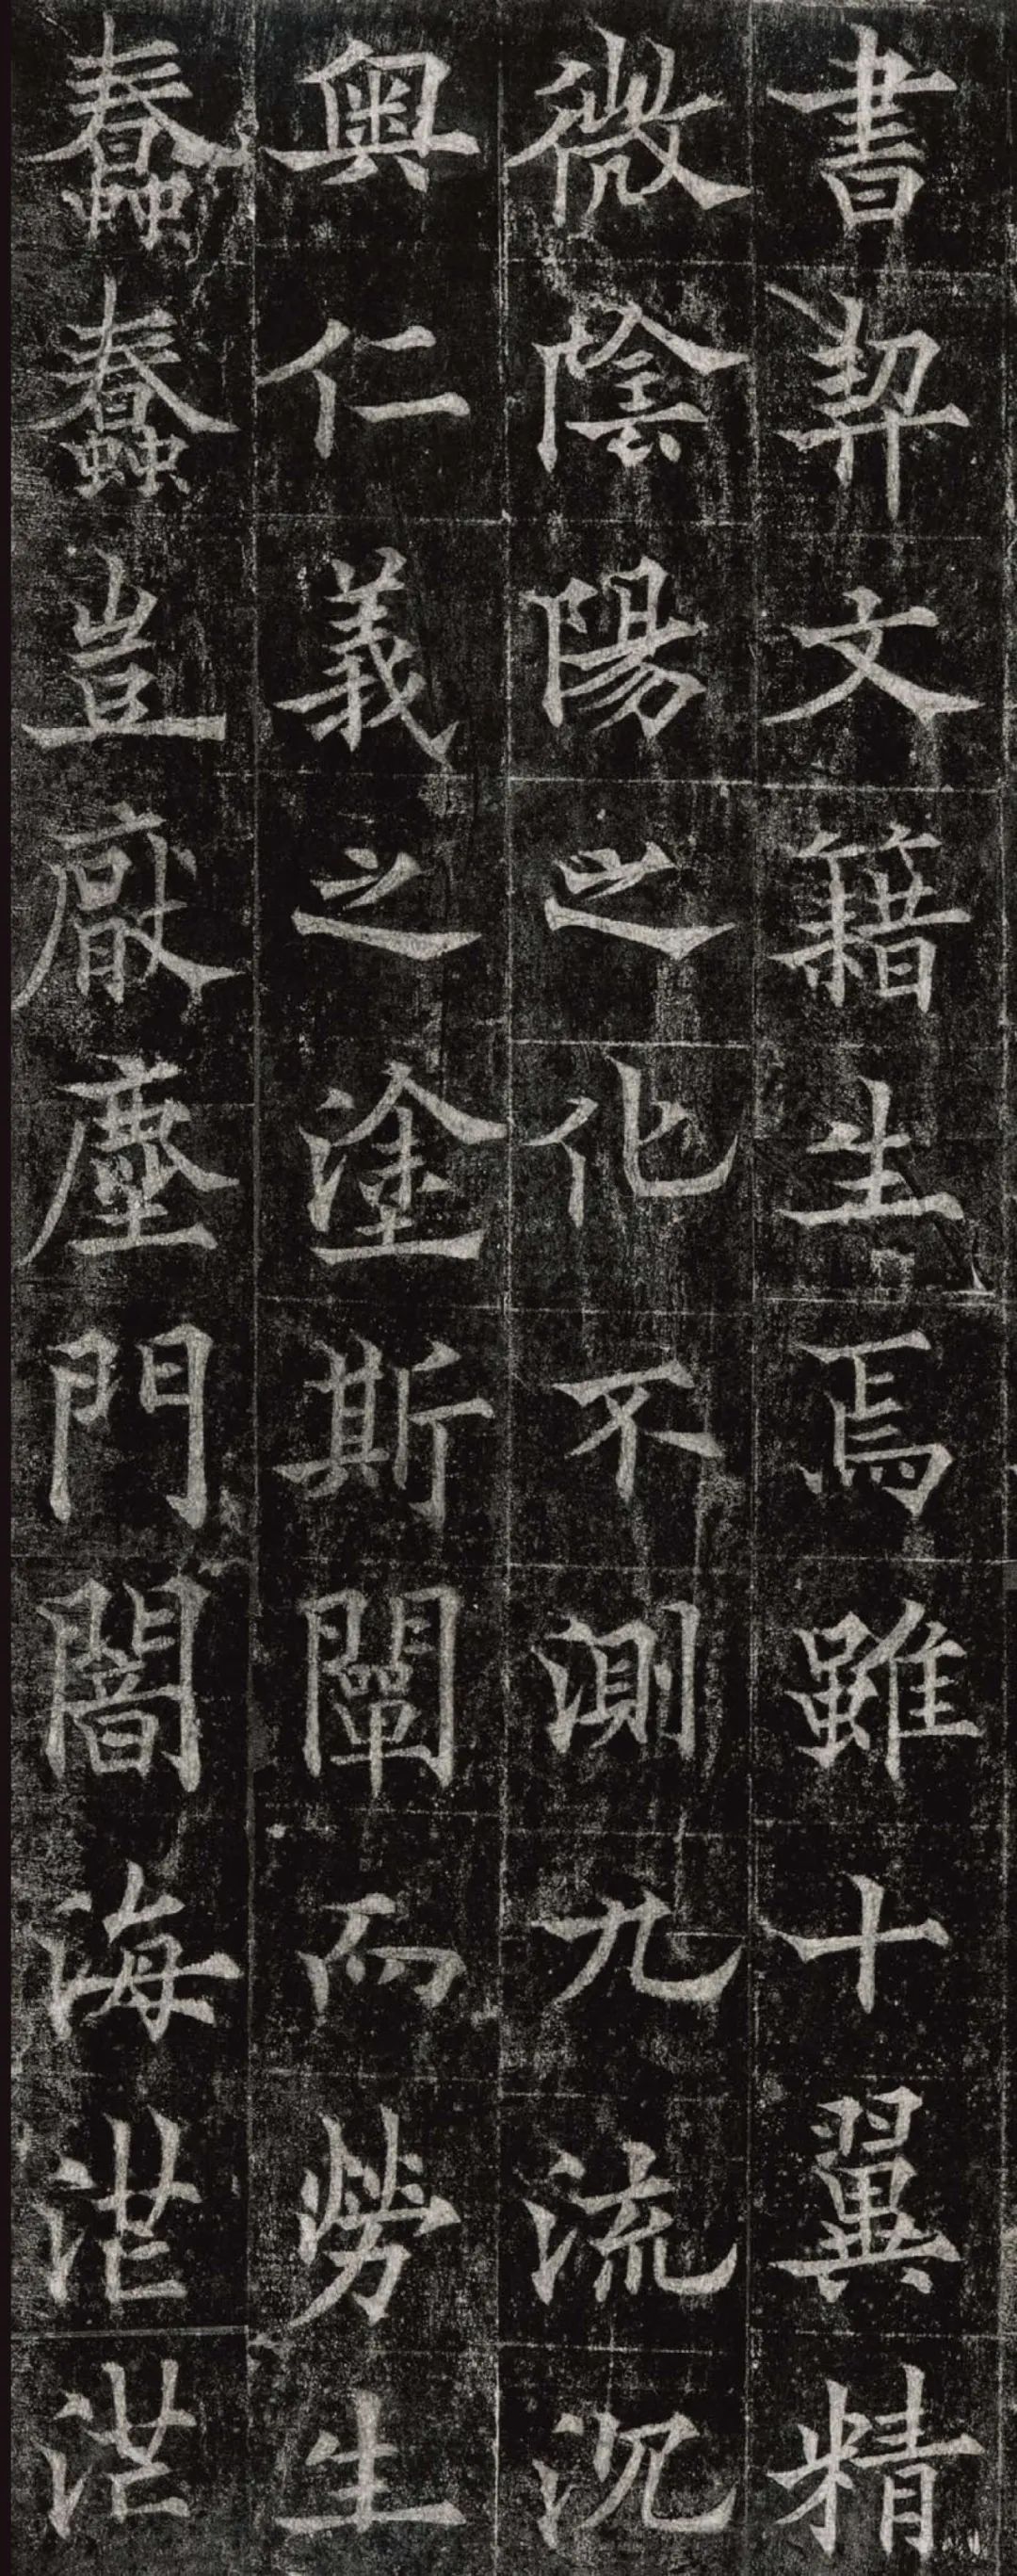 書契文籍生焉雖十翼精
微陰陽之化不測九流沉
奥仁義之塗斯闡而勞生
蠢蠢豈厭塵門闇海茫茫